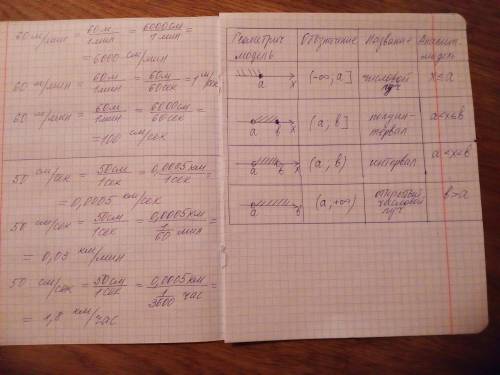 60 м/мин = 60м/1мин = 6000см/1мин =
= 6000 см/мин
60 м/мин = 60м/1мин = 60м/60сек = 1 м/сек
60 м/мин = 60м/1мин = 6000см/60сек =
= 100 см/сек
50 см/сек = 50см/1сек = 0,0005км/1сек =
= 0,0005 км/сек
50 см/сек = 50см/1сек = 0,0005км/1/60 мин =
= 0,03 км/мин
50 см/сек = 50см/1сек = 0,0005км/1/3600 час =
= 1,8 км/час
Геометрич модель Обозначение Название Аналит. модель
a x (-∞; a] числовой луч x≤a
a b x (a, b] полуинтервал a<x≤b
a b x (a, b) интервал a<x<b
a b (a, +∞) открытый числовой луч b>a